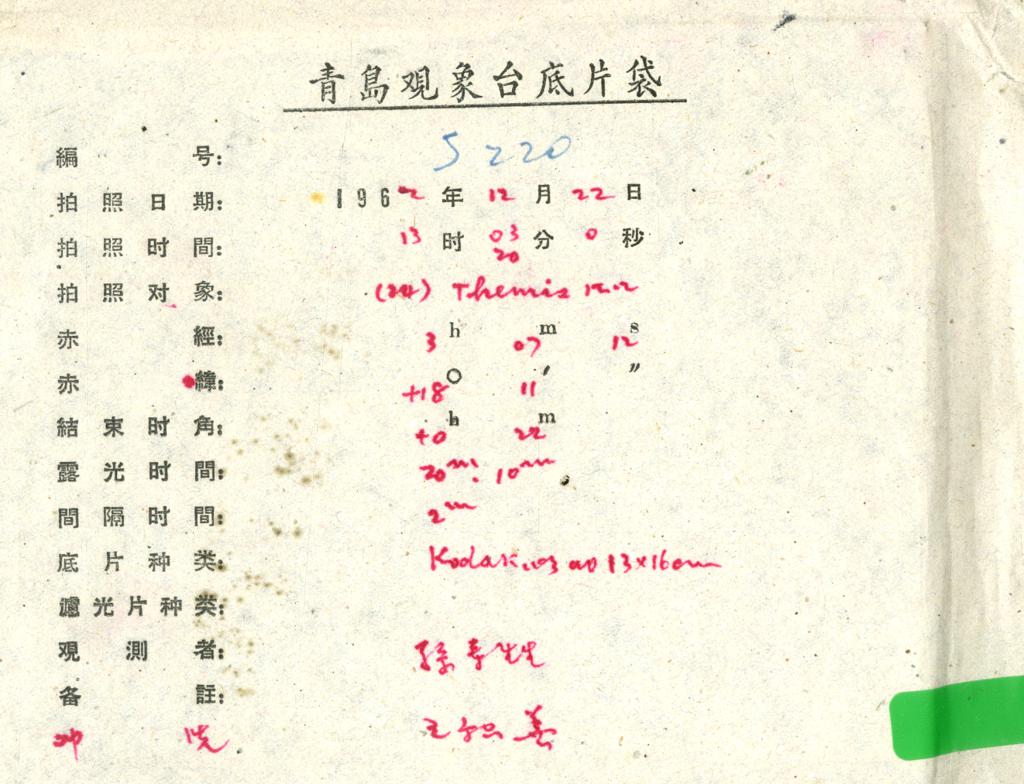 青島观象台底片袋
編号: S 220
拍照日期: 1962年12月22日
拍照时間: 13时03分0秒
20
拍照对象: (24) Themis 12.2
赤經: 3h 07m 12s
赤緯: +18° 11′ ″
結束时角: +0h 22m
露光时間: 20m; 10m
間隔时間: 2m
底片种类: Kodak 103 a0 13×16cm
濾光片种类:
观測者: 孫寿
备註:
冲洗 王 善